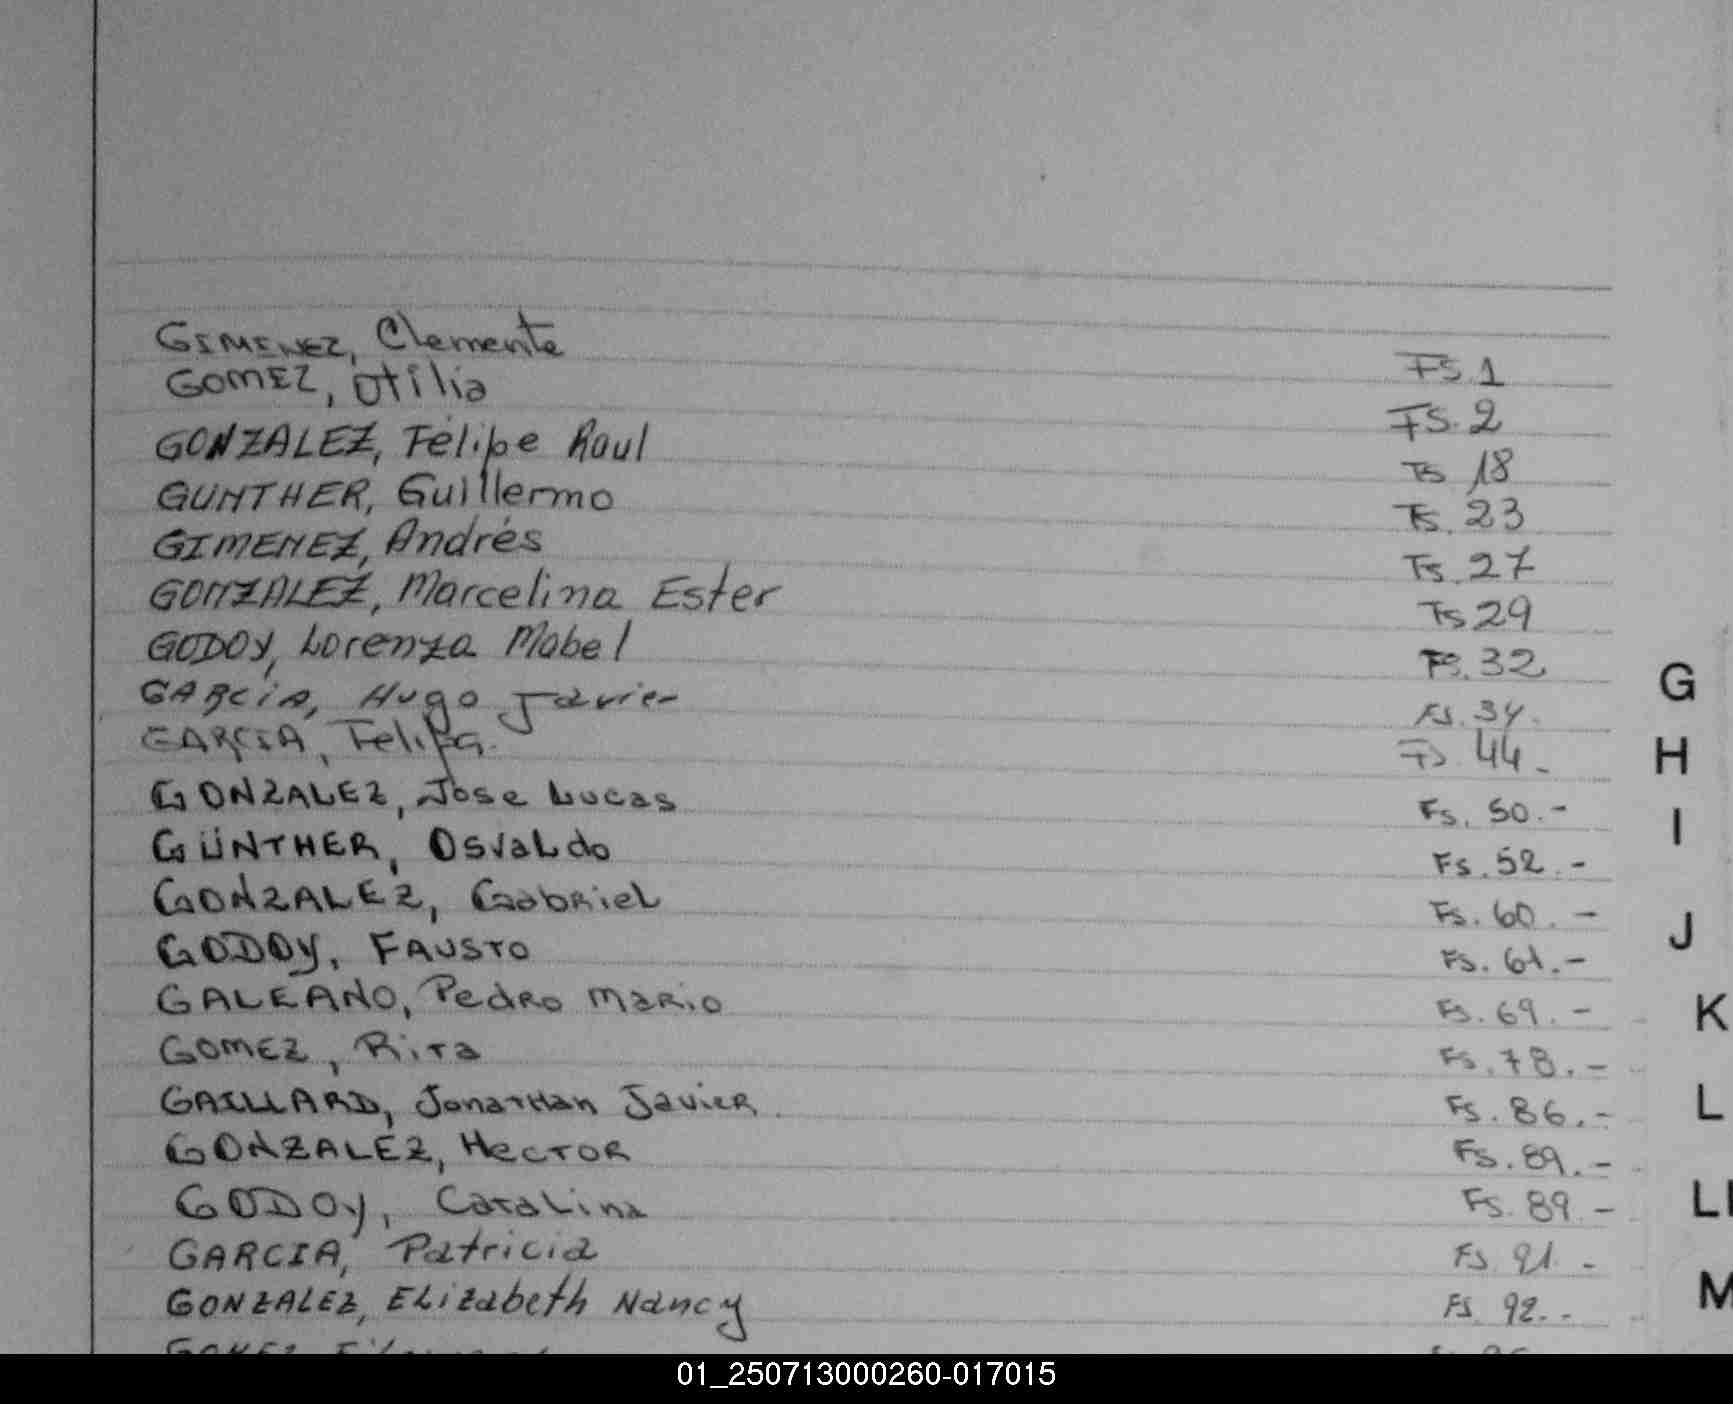 GIMENEZ, Clemente FS. 1
GOMEZ, Otilia FS. 2
GONZALEZ, Felipe Raul Fs 18
GUNTHER, Guillermo Fs. 23
GIMENEZ, Andrés Fs. 27
GONZALEZ, Marcelina Ester Fs 29
GODOY, Lorenza Mabel Fs. 32
GARCIA, Hugo Javier Fs. 34.
GARCIA, Felipa. Fs. 44-
GONZALEZ, Jose Lucas Fs. 50.-
GÜNTHER, Osvaldo Fs. 52.-
GONZALEZ, Gabriel Fs. 60.-
GODOY, FAUSTO Fs. 61.-
GALEANO, Pedro Mario Fs. 69.-
GOMEZ, Rita Fs. 78.-
GAILLARD, Jonathan Javier. Fs. 86.-
GONZALEZ, Hector Fs. 89.-
GODOY, Catalina Fs. 89-
GARCIA, Patricia Fs. 91.-
GONZALEZ, Elizabeth Nancy Fs. 92.-
G
H
I
J
K
L
M
01_250713000260-017015